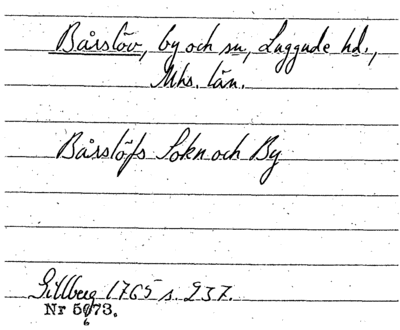 Bårslöv, by och sn, Luggude hd.,
Mhs. län.
Bårslöfs Sokn och By
Gillberg 1765 s. 237.
Nr 5673.
6